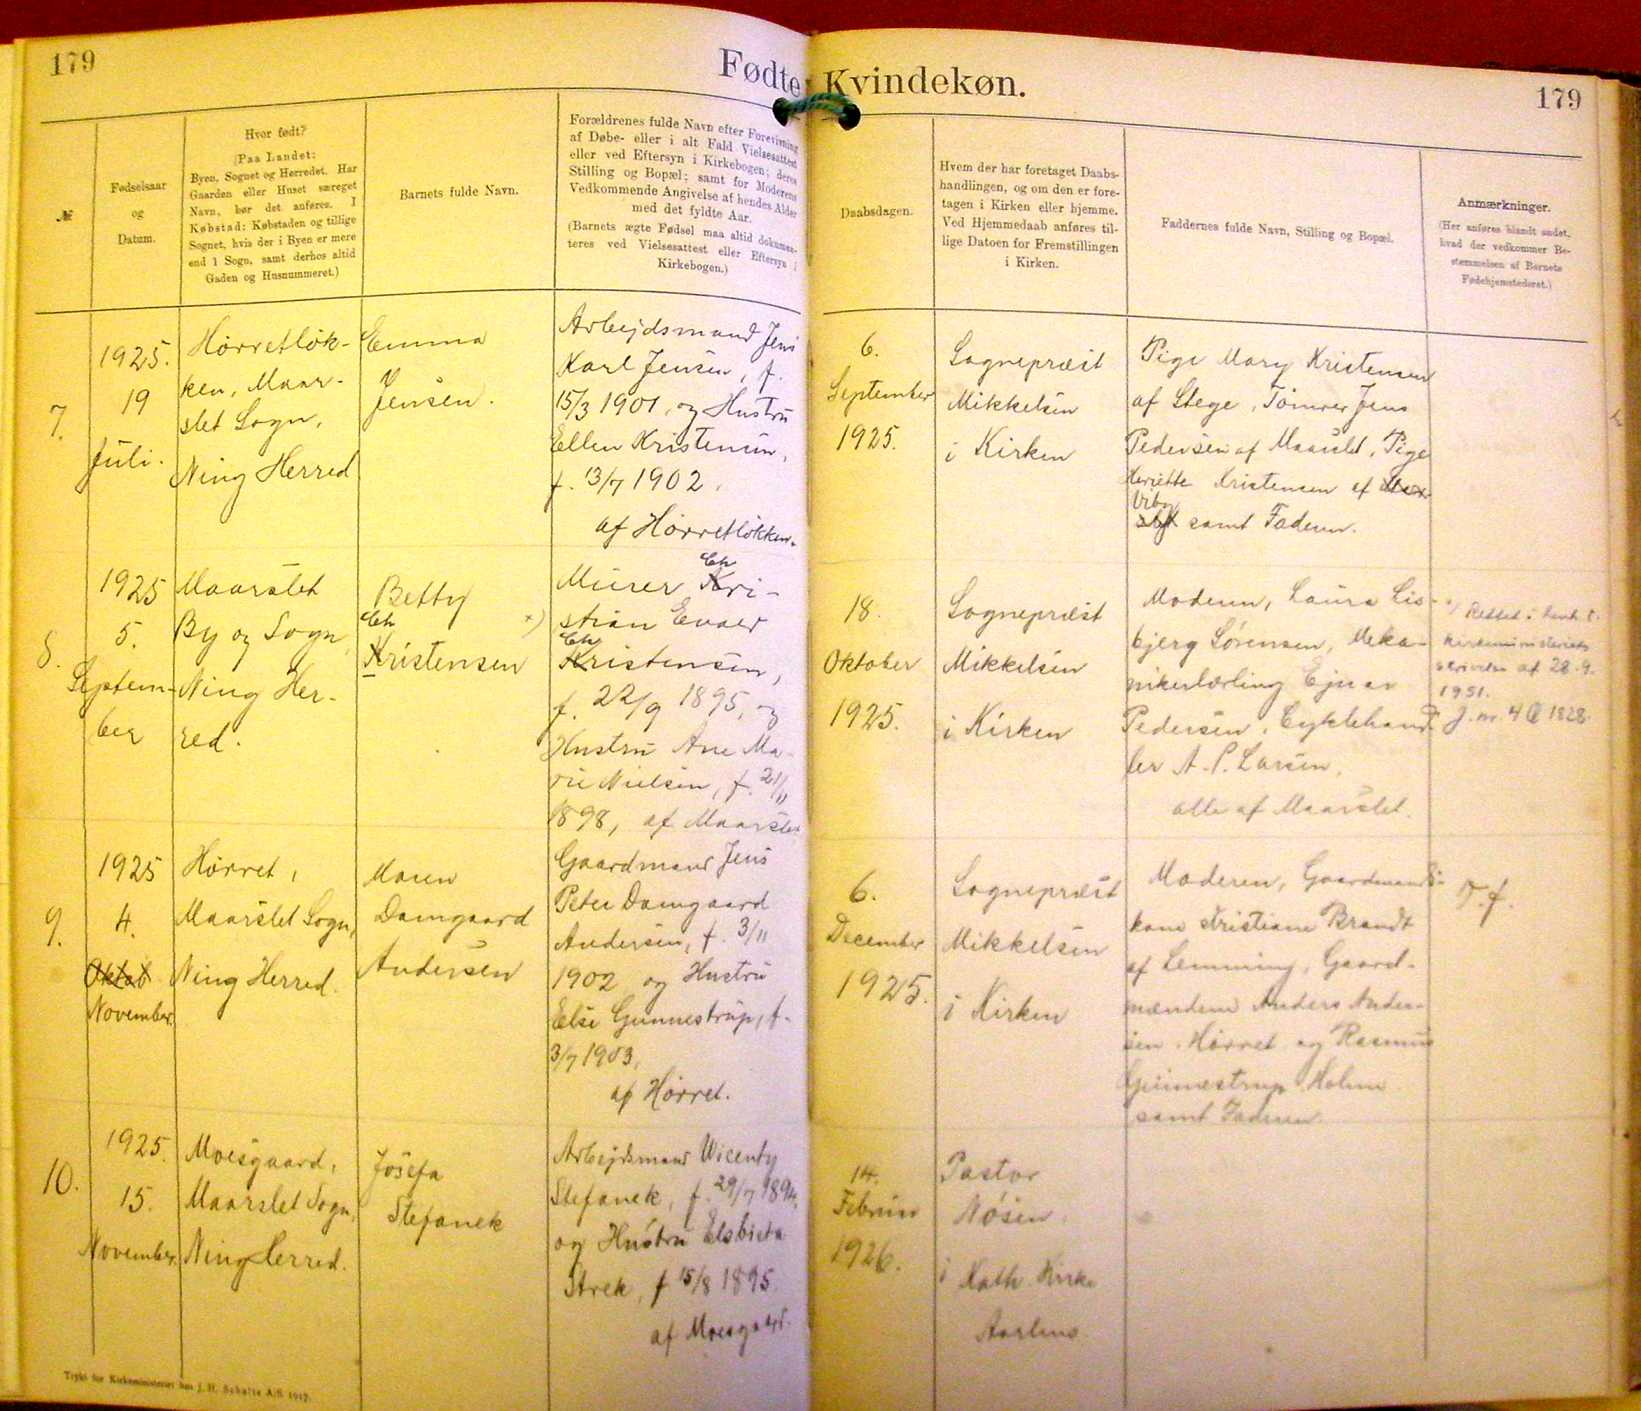 179
Fødte Kvindekøn.
179
№
Fødselsaar
og
Datum.
Hvor født?
(Paa Landet:
Byen, Sognet og Herredet. Har
Gaarden eller Huset særeget
Navn, bør det anføres. I
Købstad: Købstaden og tillige
Sognet, hvis der i Byen er mere
end 1 Sogn, samt derhos altid
Gaden og Husnummeret.)
Barnets fulde Navn.
Forældrenes fulde Navn efter Forevisning
af Døbe- eller i alt Fald Vielsesattest
eller ved Eftersyn i Kirkebogen; deres
Stilling og Bopæl; samt for Moderens
Vedkommende Angivelse af hendes Alder
med det fyldte Aar.
(Barnets ægte Fødsel maa altid dokumen-
teres ved Vielsesattest eller Eftersyn i
Kirkebogen.)
Daabsdagen.
Hvem der har foretaget Daabs-
handlingen, og om den er fore-
tagen i Kirken eller hjemme.
Ved Hjemmedaab anføres til-
lige Datoen for Fremstillingen
i Kirken.
Faddernes fulde Navn, Stilling og Bopæl.
Anmærkninger.
(Her anføres blandt andet,
hvad der vedkommer Be-
stemmelsen af Barnets
Fødehjemstederet.)
7.
1925.
19
Juli.
Hørretløk-
ken, Maar-
slet Sogn,
Ning Herred
Emma
Jensen.
Arbejdsmand Jens
Karl Jensen, f.
15/3 1901, og Hustru
Ellen Kristensen,
f. 13/7 1902.
af Hørretløkken.
6.
September
1925.
Sognepræst
Mikkelsen
i Kirken
Pige Mary Kristensen
af Stege, Tømrer Jens
Pedersen af Maarslet, Pige
Henriette Kristensen af
Viby
samt Faderen.
8.
1925
5.
Septem-
ber
Maarslet
By og Sogn,
Ning Her-
red.
Betty
Ch
Kristensen
x)
Ch
Murer Kri-
stian Evald
Ch
Kristensen,
f. 22/9 1895, og
Hustru Ane Ma-
rie Nielsen, f. 21/11
1898, af Maarslet
18.
Oktober
1925.
Sognepræst
Mikkelsen
i Kirken
Moderen, Laura Lis-
bjerg Sørensen, Meka-
nikerlærling Ejnar
Pedersen, Cyklehand-
ler A. P. Larsen,
alle af Maarslet.
x) Rettet i henh. t.
kirkeministeriets
skrivelse af 28.9.
1951.
J. nr. 4 1828.
9.
1925
4.
Oktob
November.
Hørret,
Maarslet Sogn,
Ning Herred.
Maren
Damgaard
Andersen
Gaardmand Jens
Peter Damgaard
Andersen, f. 3/11
1902 og Hustru
Else Gunnestrup, f.
3/7 1903,
af Hørret.
6.
December
1925.
Sognepræst
Mikkelsen
i Kirken
Moderen, Gaardmands-
kone Kristiane Brandt
af Lemming, Gaard-
mændene Anders Ander-
sen, Hørret og Rasmus
Gunnestrup, Holme
samt Faderen.
T. f.
10.
1925.
15.
November.
Moesgaard,
Maarslet Sogn,
Ning Herred.
Josefa
Stefanek
Arbejdsmand Wicenty
Stefanek, f. 29/7 1894,
og Hustru Elsbieta
Strek, f 15/8 1895.
af Moesgaard.
14.
Februar
1926.
Pastor
Nösen,
i Kath. Kirke
Aarhus.
Trykt for Kirkeministeriet hos J. H. Schultz A/S. 1917.